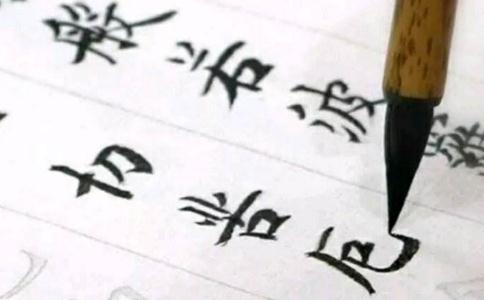 般若波羅
切苦厄